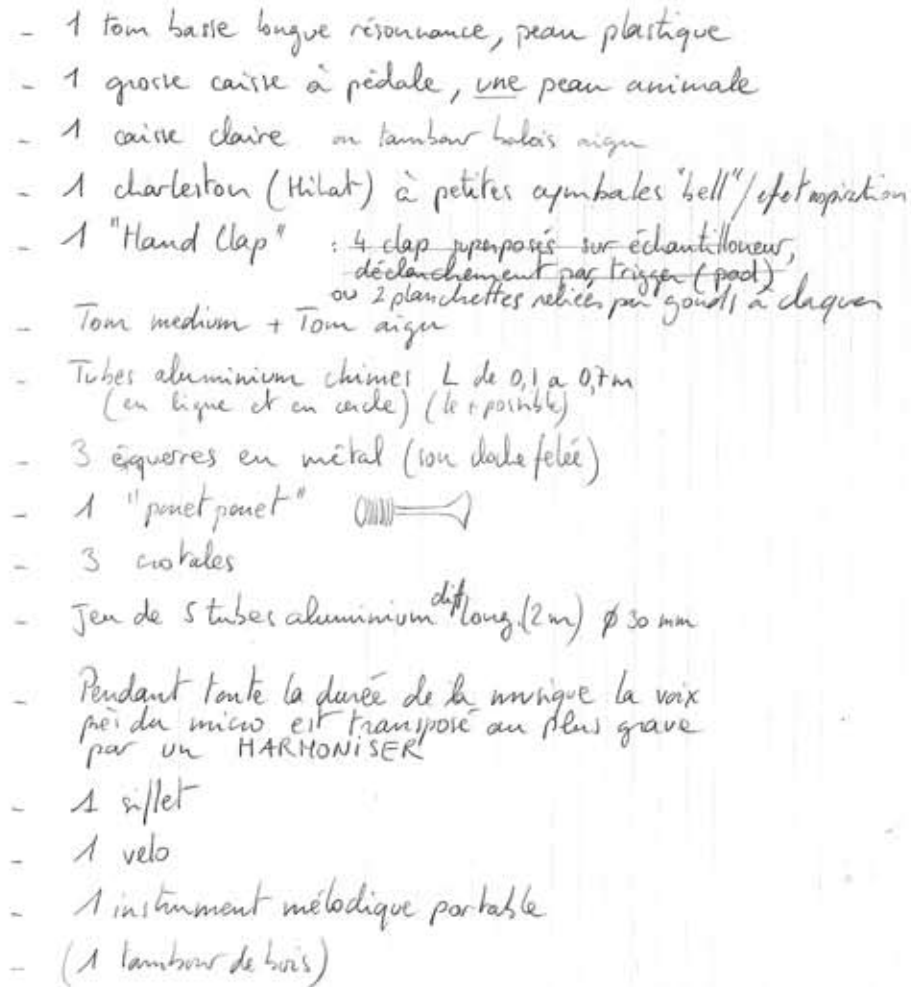 - 1 tom basse longue résonnance, peau plastique
- 1 grosse caisse à pédale, une peau animale
- 1 caisse claire ou tambour balais aigu
- 1 charleston (Hihat) à petites cymbales "bell"/efet aspiration
- 1 "Hand Clap" : 4 clap superposés sur échantilloneur,
déclanchement par trigger (pad)
ou 2 planchettes reliées par gonds à claquer
- Tom medium + Tom aigu
- Tubes aluminium chimes L de 0,1 a 0,7m
(en ligne et en cercle) (le + possible)
- 3 équerres en métal (son cloche felée)
- 1 "pouet pouet"
- 3 crotales
- Jeu de 5 tubes aluminium diff long. (2m) ø 30 mm
- Pendant toute la durée de la musique la voix
près du micro est transposé au plus grave
par un HARMONISER
- 1 sifflet
- 1 velo
- 1 instrument mélodique portable
- (1 tambour de bois)